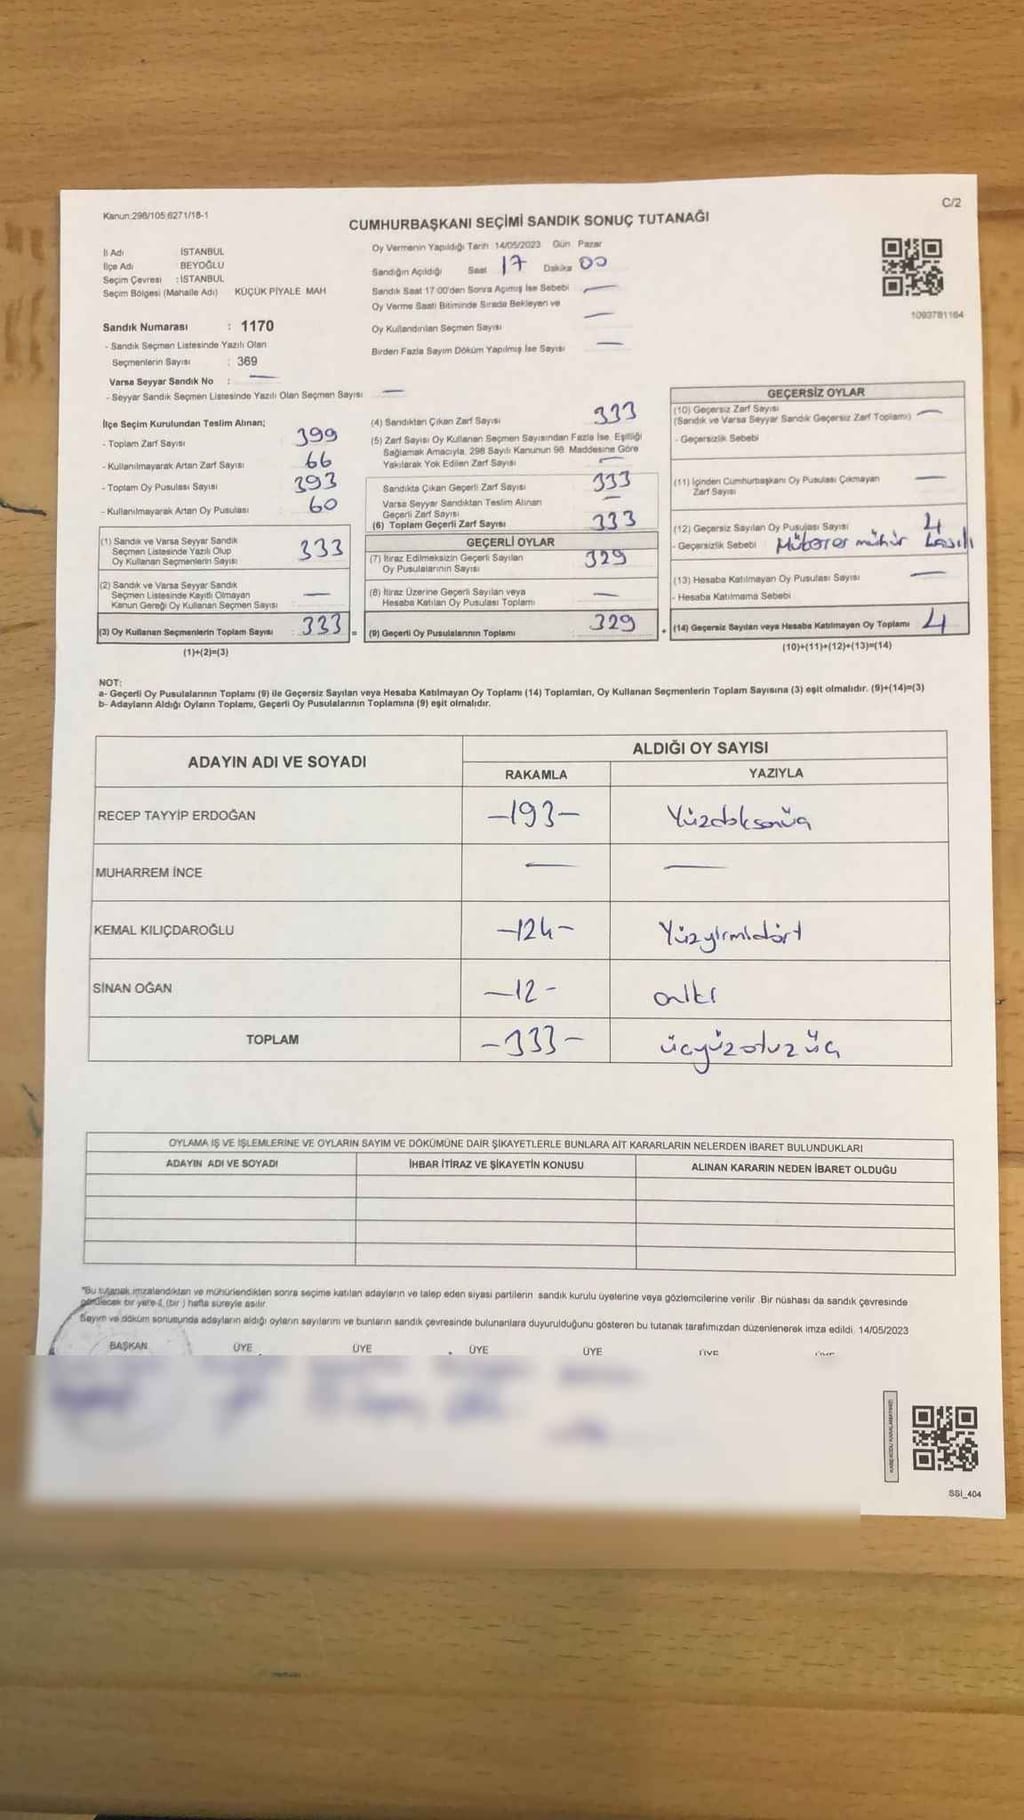 Kanun:298/105;6271/18-1
C/2
CUMHURBAŞKANI SEÇİMİ SANDIK SONUÇ TUTANAĞI
İl Adı İSTANBUL
İlçe Adı BEYOĞLU
Seçim Çevresi : İSTANBUL
Seçim Bölgesi (Mahalle Adı) KÜÇÜK PİYALE MAH
Oy Vermenin Yapıldığı Tarih 14/05/2023 Gün Pazar
Sandığın Açıldığı Saat 17 Dakika 00
Sandık Saat 17:00'den Sonra Açmış İse Sebebi —
Oy Verme Saati Bitiminde Sırada Bekleyen ve
Oy Kullandırılan Seçmen Sayısı —
Birden Fazla Sayım Döküm Yapılmış İse Sayısı —
1093781164
Sandık Numarası : 1170
- Sandık Seçmen Listesinde Yazılı Olan
Seçmenlerin Sayısı : 369
Varsa Seyyar Sandık No : —
- Seyyar Sandık Seçmen Listesinde Yazılı Olan Seçmen Sayısı —
İlçe Seçim Kurulundan Teslim Alınan;
- Toplam Zarf Sayısı 399
- Kullanılmayarak Artan Zarf Sayısı 66
- Toplam Oy Pusulası Sayısı 393
- Kullanılmayarak Artan Oy Pusulası 60
(1) Sandık ve Varsa Seyyar Sandık
Seçmen Listesinde Yazılı Olup
Oy Kullanan Seçmenlerin Sayısı 333
(2) Sandık ve Varsa Seyyar Sandık
Seçmen Listesinde Kayıtlı Olmayan
Kanun Gereği Oy Kullanan Seçmen Sayısı —
(3) Oy Kullanan Seçmenlerin Toplam Sayısı 333 =
(1)+(2)=(3)
(4) Sandıktan Çıkan Zarf Sayısı 333
(5) Zarf Sayısı Oy Kullanan Seçmen Sayısından Fazla İse, Eşitliği
Sağlamak Amacıyla, 298 Sayılı Kanunun 98. Maddesine Göre
Yakılarak Yok Edilen Zarf Sayısı —
Sandıkta Çıkan Geçerli Zarf Sayısı 333
Varsa Seyyar Sandıktan Teslim Alınan
Geçerli Zarf Sayısı —
(6) Toplam Geçerli Zarf Sayısı 333
GEÇERLİ OYLAR
(7) İtiraz Edilmeksizin Geçerli Sayılan
Oy Pusulalarının Sayısı 329
(8) İtiraz Üzerine Geçerli Sayılan veya
Hesaba Katılan Oy Pusulası Toplamı —
(9) Geçerli Oy Pusulalarının Toplamı 329 +
GEÇERSİZ OYLAR
(10) Geçersiz Zarf Sayısı
(Sandık ve Varsa Seyyar Sandık Geçersiz Zarf Toplamı) —
- Geçersizlik Sebebi
(11) İçinden Cumhurbaşkanı Oy Pusulası Çıkmayan
Zarf Sayısı —
(12) Geçersiz Sayılan Oy Pusulası Sayısı 4
- Geçersizlik Sebebi mühür
(13) Hesaba Katılmayan Oy Pusulası Sayısı —
- Hesaba Katılmama Sebebi
(14) Geçersiz Sayılan veya Hesaba Katılmayan Oy Toplamı 4
(10)+(11)+(12)+(13)=(14)
NOT:
a- Geçerli Oy Pusulalarının Toplamı (9) ile Geçersiz Sayılan veya Hesaba Katılmayan Oy Toplamı (14) Toplamları, Oy Kullanan Seçmenlerin Toplam Sayısına (3) eşit olmalıdır. (9)+(14)=(3)
b- Adayların Aldığı Oyların Toplamı, Geçerli Oy Pusulalarının Toplamına (9) eşit olmalıdır.
ADAYIN ADI VE SOYADI
ALDIĞI OY SAYISI
RAKAMLA YAZIYLA
RECEP TAYYİP ERDOĞAN -193- Yüzdoksanüç
MUHARREM İNCE — —
KEMAL KILIÇDAROĞLU -124- Yüzyirmidört
SİNAN OĞAN -12- oniki
TOPLAM -333- üçyüzotuzüç
OYLAMA İŞ VE İŞLEMLERİNE VE OYLARIN SAYIM VE DÖKÜMÜNE DAİR ŞİKAYETLERLE BUNLARA AİT KARARLARIN NELERDEN İBARET BULUNDUKLARI
ADAYIN ADI VE SOYADI İHBAR İTİRAZ VE ŞİKAYETİN KONUSU ALINAN KARARIN NEDEN İBARET OLDUĞU
*Bu tutanak imzalandıktan ve mühürlendikten sonra seçime katılan adayların ve talep eden siyasi partilerin sandık kurulu üyelerine veya gözlemcilerine verilir. Bir nüshası da sandık çevresinde
görülecek bir yere 1 (bir) hafta süreyle asılır.
Sayım ve döküm sonusunda adayların aldığı oyların sayılarını ve bunların sandık çevresinde bulunanlara duyurulduğunu gösteren bu tutanak tarafımızdan düzenlenerek imza edildi. 14/05/2023
BAŞKAN ÜYE ÜYE ÜYE ÜYE ÜYE
SSİ_404